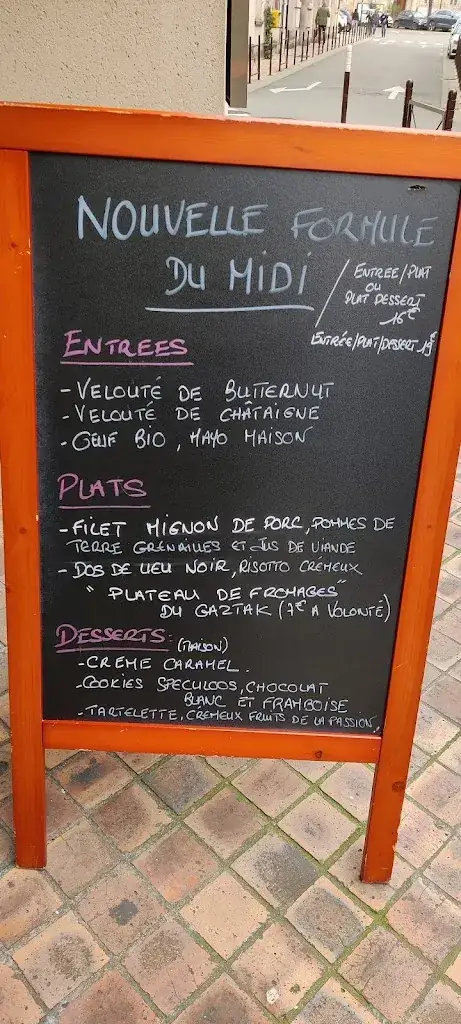 NOUVELLE FORMULE
DU MIDI
ENTREE/PLAT
OU
PLAT DESSERT
16€
ENTRÉE/PLAT/DESSERT 19€
ENTREES
- VELOUTÉ DE BUTTERNUT
- VELOUTÉ DE CHÂTAIGNE
- OEUF BIO, MAYO MAISON
PLATS
- FILET MIGNON DE PORC, POMMES DE
TERRE GRENAILLES ET JUS DE VIANDE
- DOS DE LIEU NOIR, RISOTTO CRÉMEUX
" PLATEAU DE FROMAGES"
DU GAZTAK (7€ A VOLONTÉ)
DESSERTS: (MAISON)
- CREME CARAMEL.
- COOKIES SPECULOOS, CHOCOLAT
BLANC ET FRAMBOISE
- TARTELETTE, CREMEUX FRUITS DE LA PASSION,